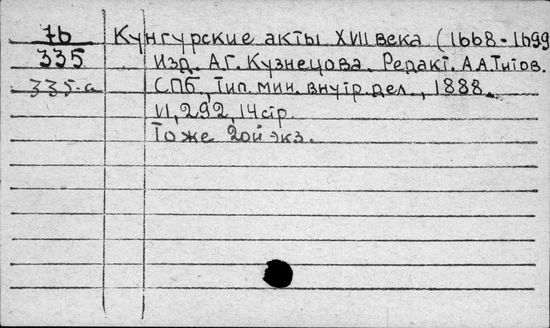 76 Кунгурские акты XVII века (1668-1699
335 Изд. А.Г. Кузнецова. Редакт. А.А.Титов.
335-а СПб, Тип. мин. внутр. дел., 1888.
VI, 292, 14 стр.
То же 2ой экз.